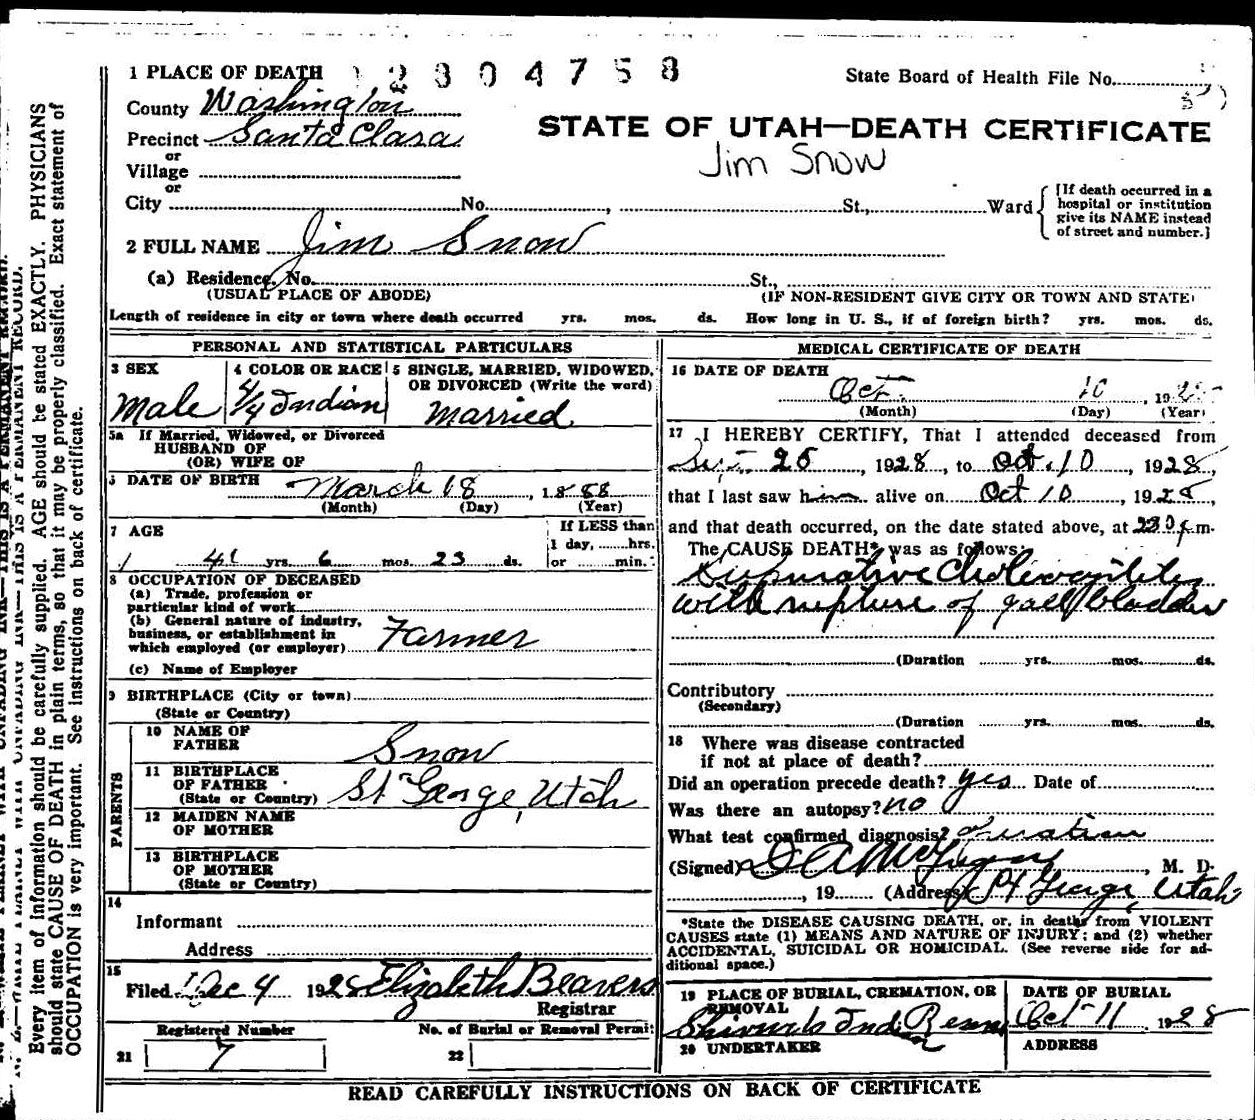 1 PLACE OF DEATH 2804758 State Board of Health File No.
County Washington
Precinct Santa Clara
STATE OF UTAH—DEATH CERTIFICATE
or
Village
Jim Snow
or
City No. , St., Ward [If death occurred in a hospital or institution give its NAME instead of street and number.]
2 FULL NAME Jim Snow
(a) Residence, No. St.,
(USUAL PLACE OF ABODE) (IF NON-RESIDENT GIVE CITY OR TOWN AND STATE)
Length of residence in city or town where death occurred yrs. mos. ds. How long in U. S., if of foreign birth? yrs. mos. ds.
PERSONAL AND STATISTICAL PARTICULARS
3 SEX
Male
4 COLOR OR RACE
4/4 Indian
5 SINGLE, MARRIED, WIDOWED, OR DIVORCED (Write the word)
Married
5a If Married, Widowed, or Divorced
HUSBAND OF
(OR) WIFE OF
DATE OF BIRTH March 18, 1888
(Month) (Day) (Year)
7 AGE
yrs. 6 mos. 23 ds.
If LESS than
1 day, hrs.
or min.
8 OCCUPATION OF DECEASED
(a) Trade, profession or
particular kind of work
(b) General nature of industry,
business, or establishment in
which employed (or employer) Farmer
(c) Name of Employer
9 BIRTHPLACE (City or town)
(State or Country)
PARENTS
10 NAME OF
FATHER Snow
11 BIRTHPLACE
OF FATHER
(State or Country) St George, Utah
12 MAIDEN NAME
OF MOTHER
13 BIRTHPLACE
OF MOTHER
(State or Country)
14
Informant
Address
15
Filed Dec 4 1928 Elizabeth Beavers
Registrar
Registered Number No. of Burial or Removal Permit
21 7 22
MEDICAL CERTIFICATE OF DEATH
16 DATE OF DEATH
Oct. 10, 192
(Month) (Day) (Year)
17 I HEREBY CERTIFY, That I attended deceased from
25, 1928, to Oct. 10, 1928,
that I last saw him alive on Oct 10, 1928,
and that death occurred, on the date stated above, at 230 p.m.
The CAUSE DEATH* was as follows:
with rupture of gall bladder
(Duration yrs. mos. ds.
Contributory
(Secondary)
(Duration yrs. mos. ds.
18 Where was disease contracted
if not at place of death?
Did an operation precede death? yes Date of
Was there an autopsy? no
What test confirmed diagnosis?
(Signed) , M. D.
, 19 (Address) St George, Utah
*State the DISEASE CAUSING DEATH, or, in deaths from VIOLENT
CAUSES state (1) MEANS AND NATURE OF INJURY; and (2) whether
ACCIDENTAL, SUICIDAL OR HOMICIDAL. (See reverse side for ad-
ditional space.)
19 PLACE OF BURIAL, CREMATION, OR
REMOVAL
Shivwits Indian
DATE OF BURIAL
Oct 11 1928
20 UNDERTAKER ADDRESS
READ CAREFULLY INSTRUCTIONS ON BACK OF CERTIFICATE
Every item of information should be carefully supplied. AGE should be stated EXACTLY. PHYSICIANS
should state CAUSE OF DEATH in plain terms, so that it may be properly classified. Exact statement of
OCCUPATION is very important. See instructions on back of certificate.